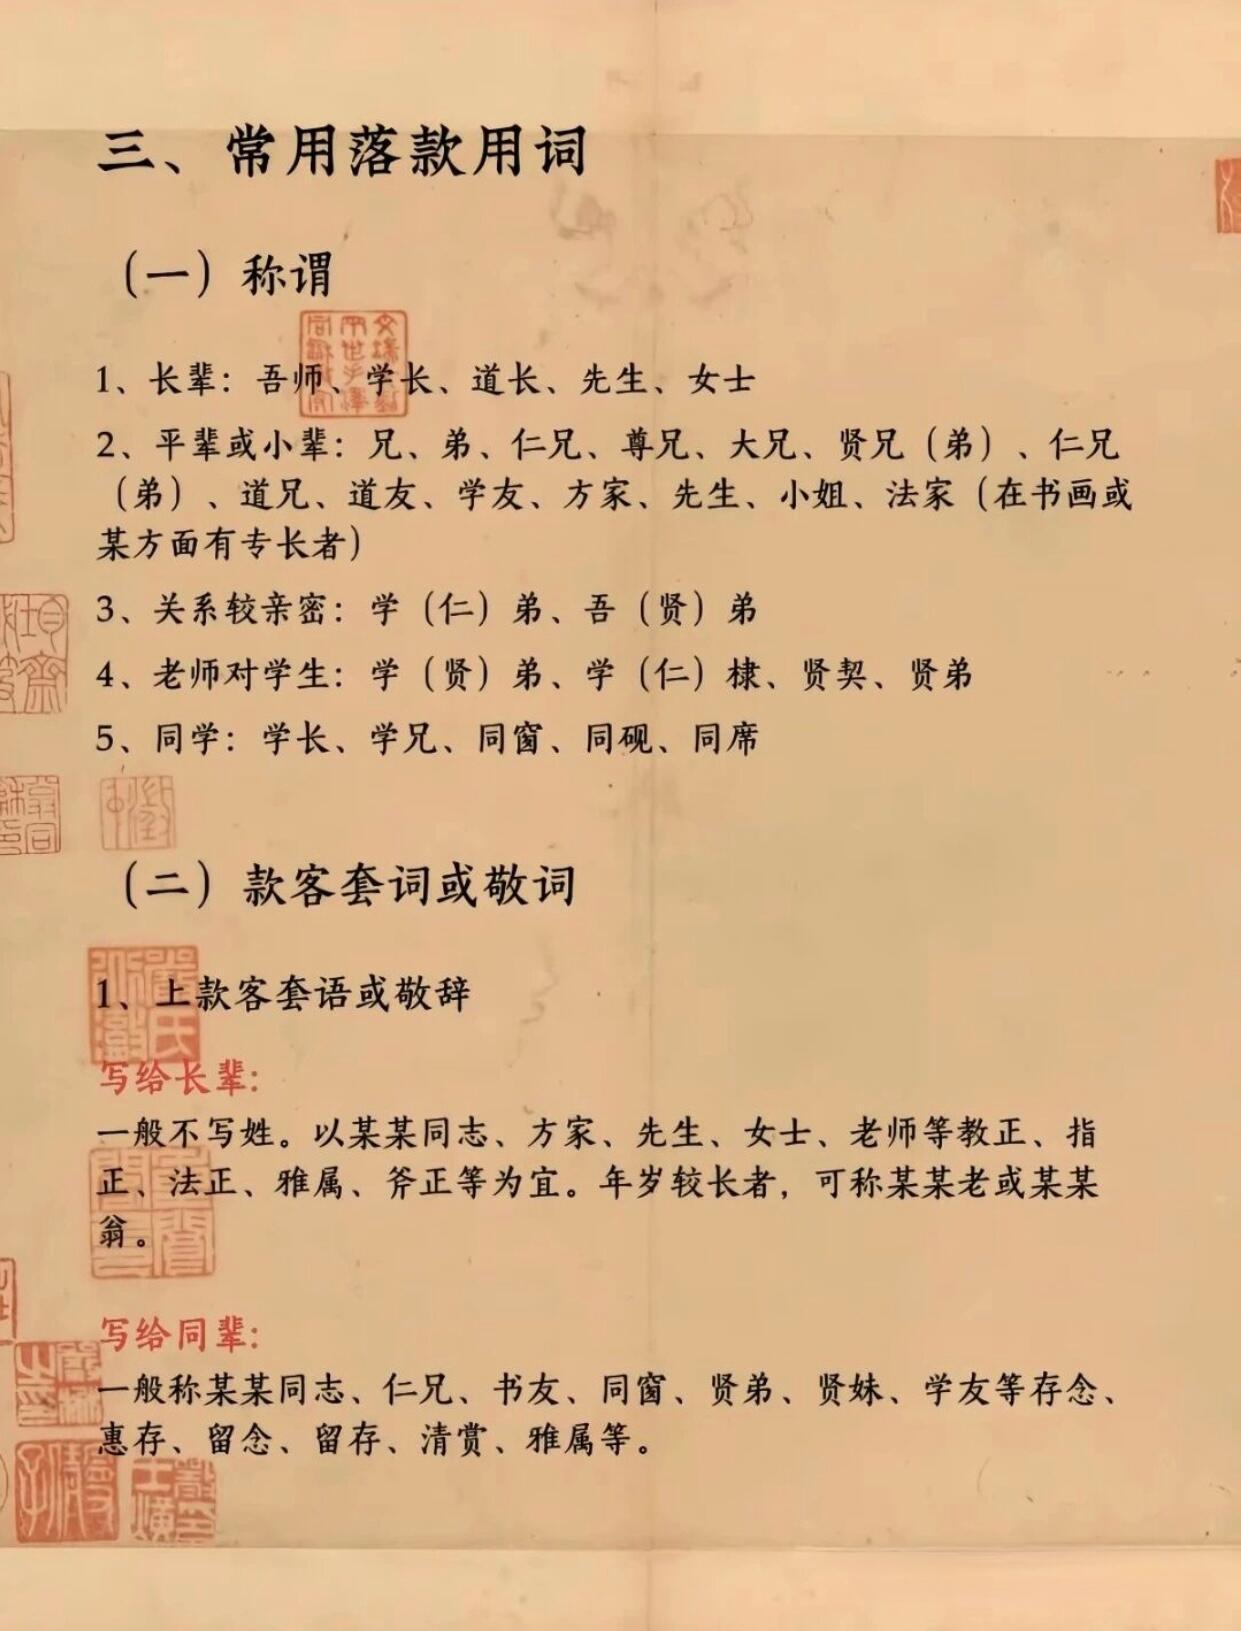 三、常用落款用词
（一）称谓
1、长辈：吾师、学长、道长、先生、女士
2、平辈或小辈：兄、弟、仁兄、尊兄、大兄、贤兄（弟）、仁兄
（弟）、道兄、道友、学友、方家、先生、小姐、法家（在书画或
某方面有专长者）
3、关系较亲密：学（仁）弟、吾（贤）弟
4、老师对学生：学（贤）弟、学（仁）棣、贤契、贤弟
5、同学：学长、学兄、同窗、同砚、同席
（二）款客套词或敬词
1、上款客套语或敬辞
写给长辈：
一般不写姓。以某某同志、方家、先生、女士、老师等教正、指
正、法正、雅属、斧正等为宜。年岁较长者，可称某某老或某某
翁。
写给同辈：
一般称某某同志、仁兄、书友、同窗、贤弟、贤妹、学友等存念、
惠存、留念、留存、清赏、雅属等。